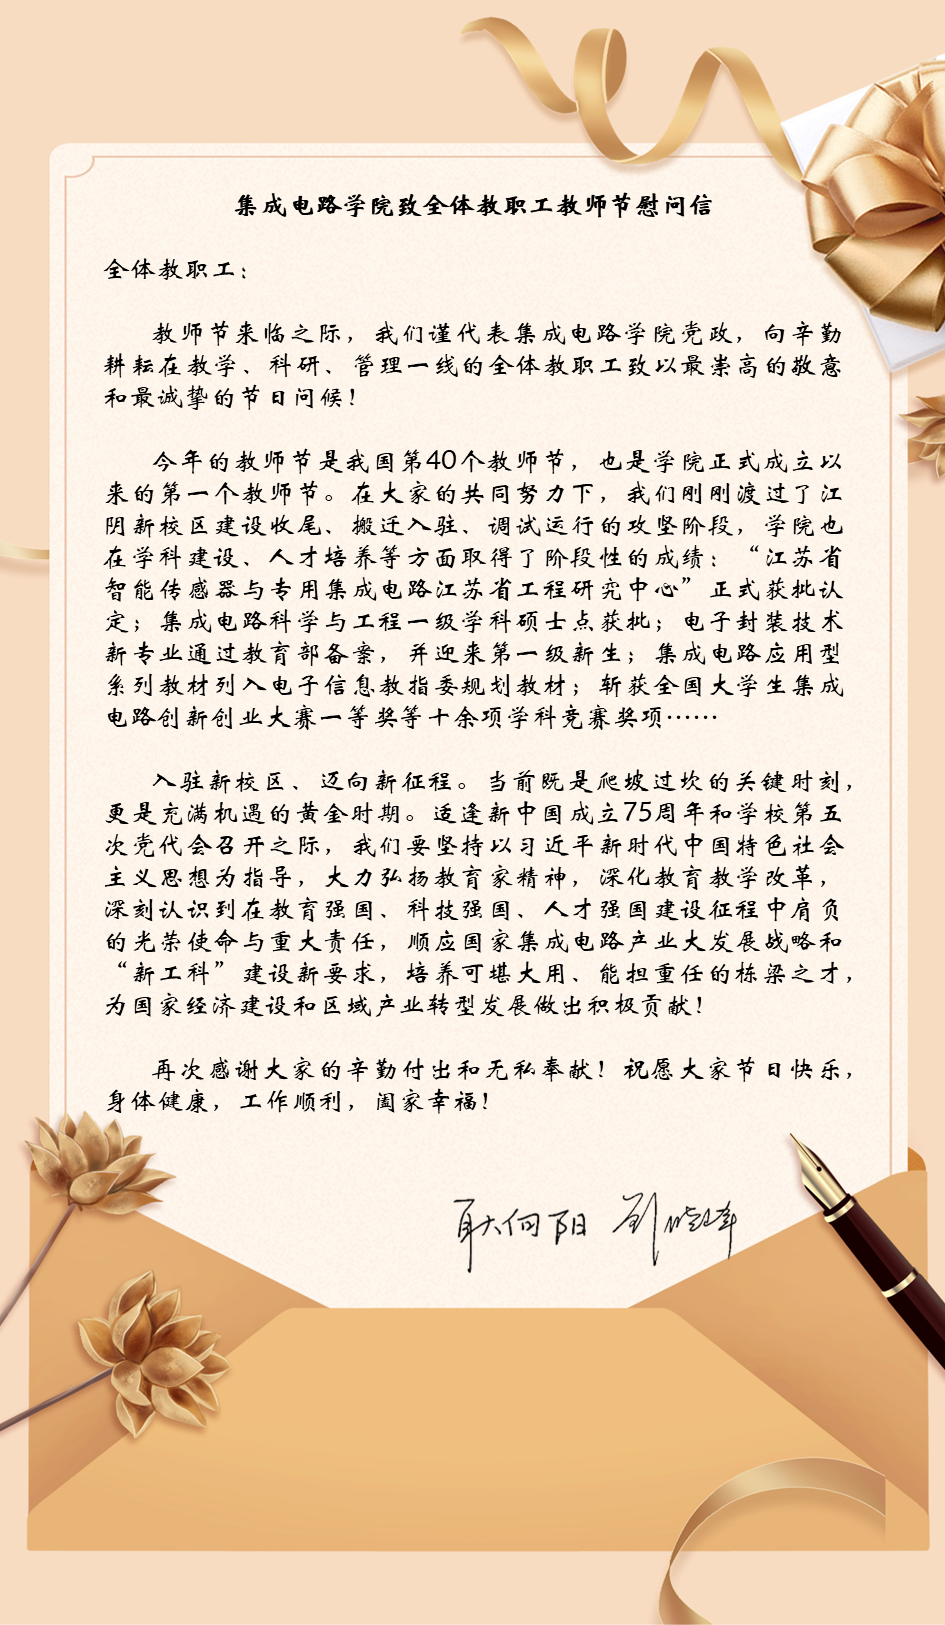 集成电路学院致全体教职工教师节慰问信
全体教职工：
教师节来临之际，我们谨代表集成电路学院党政，向辛勤
耕耘在教学、科研、管理一线的全体教职工致以最崇高的敬意
和最诚挚的节日问候！
今年的教师节是我国第40个教师节，也是学院正式成立以
来的第一个教师节。在大家的共同努力下，我们刚刚渡过了江
阴新校区建设收尾、搬迁入驻、调试运行的攻坚阶段，学院也
在学科建设、人才培养等方面取得了阶段性的成绩：“江苏省
智能传感器与专用集成电路江苏省工程研究中心”正式获批认
定；集成电路科学与工程一级学科硕士点获批；电子封装技术
新专业通过教育部备案，并迎来第一级新生；集成电路应用型
系列教材列入电子信息教指委规划教材；斩获全国大学生集成
电路创新创业大赛一等奖等十余项学科竞赛奖项……
入驻新校区、迈向新征程。当前既是爬坡过坎的关键时刻，
更是充满机遇的黄金时期。适逢新中国成立75周年和学校第五
次党代会召开之际，我们要坚持以习近平新时代中国特色社会
主义思想为指导，大力弘扬教育家精神，深化教育教学改革，
深刻认识到在教育强国、科技强国、人才强国建设征程中肩负
的光荣使命与重大责任，顺应国家集成电路产业大发展战略和
“新工科”建设新要求，培养可堪大用、能担重任的栋梁之才，
为国家经济建设和区域产业转型发展做出积极贡献！
再次感谢大家的辛勤付出和无私奉献！祝愿大家节日快乐，
身体健康，工作顺利，阖家幸福！
耿向阳 刘晓峰